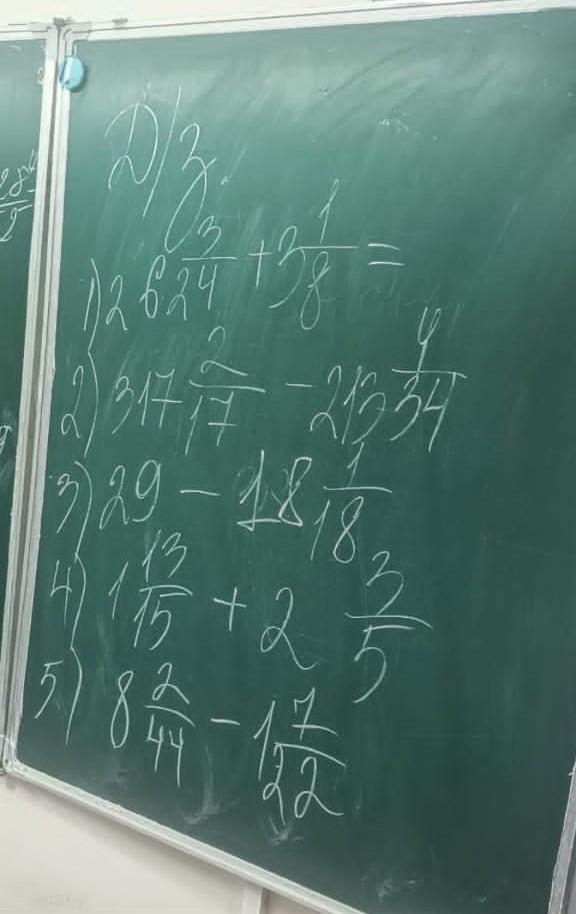 Д/з.
1) 26 3/24 + 3 1/8 =
2) 317 2/17 - 213 4/34
3) 29 - 18 1/18
4) 1 13/15 + 2 3/5
5) 8 2/44 - 1 7/22